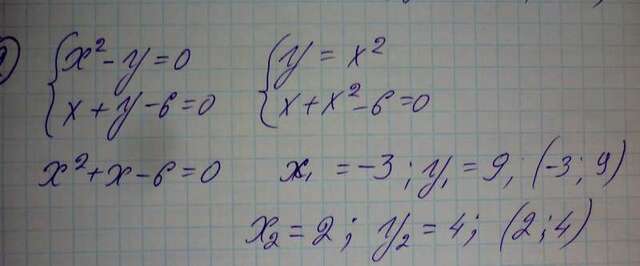 {x²-y=0 {y=x²
{x+y-6=0 {x+x²-6=0
x²+x-6=0 x₁=-3; y₁=9; (-3; 9)
x₂=2; y₂=4; (2; 4)